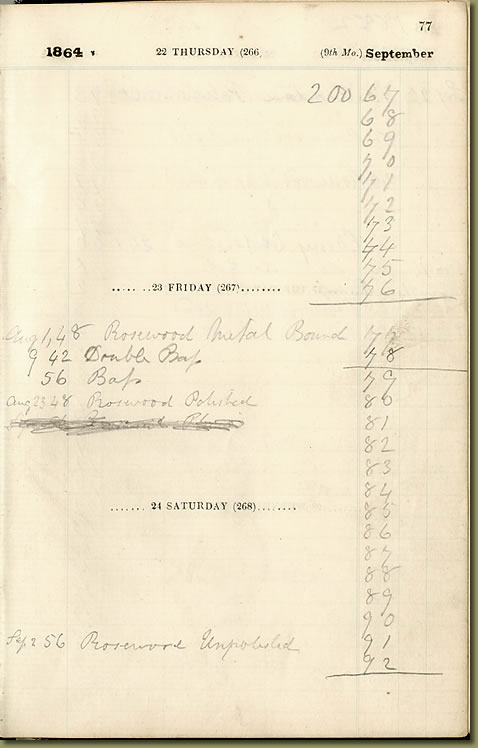 77
1864 22 THURSDAY (266 (9th Mo.) September
200 67
68
69
70
71
72
73
74
75
76
......23 FRIDAY (267)........
Aug 1, 48 Rosewood Metal Bound 77
9 42 Double Bass 78
56 Bass 79
Aug 23 48 Rosewood Polished 80
81
82
83
84
.......24 SATURDAY (268)........ 85
86
87
88
89
90
Sep 2 56 Rosewood Unpolished 91
92